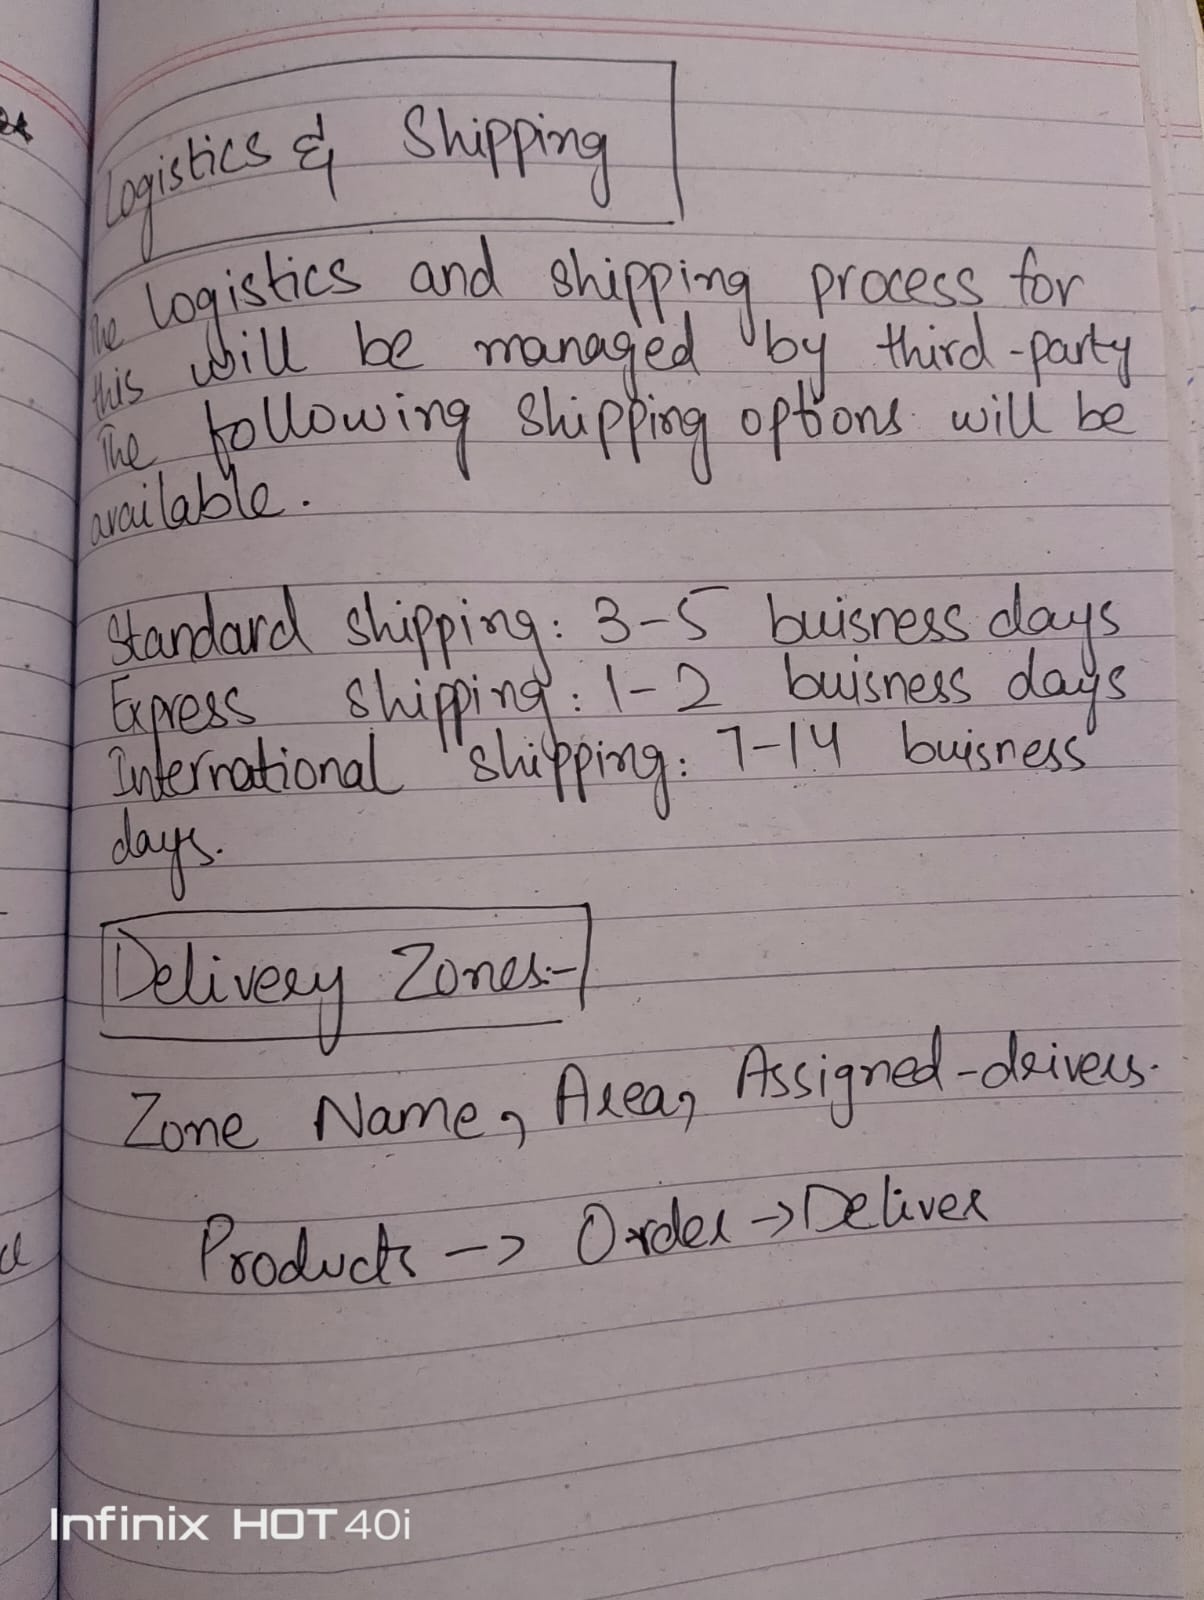 Logistics & Shipping
The logistics and shipping process for
this will be managed by third-party
The following shipping options will be
available.
Standard shipping: 3-5 buisness days
Express shipping: 1-2 buisness days
International shipping: 7-14 buisness
days.
Delivery Zones:-
Zone Name, Area, Assigned-drivers.
Products -> Order -> Deliver
Infinix HOT 40i